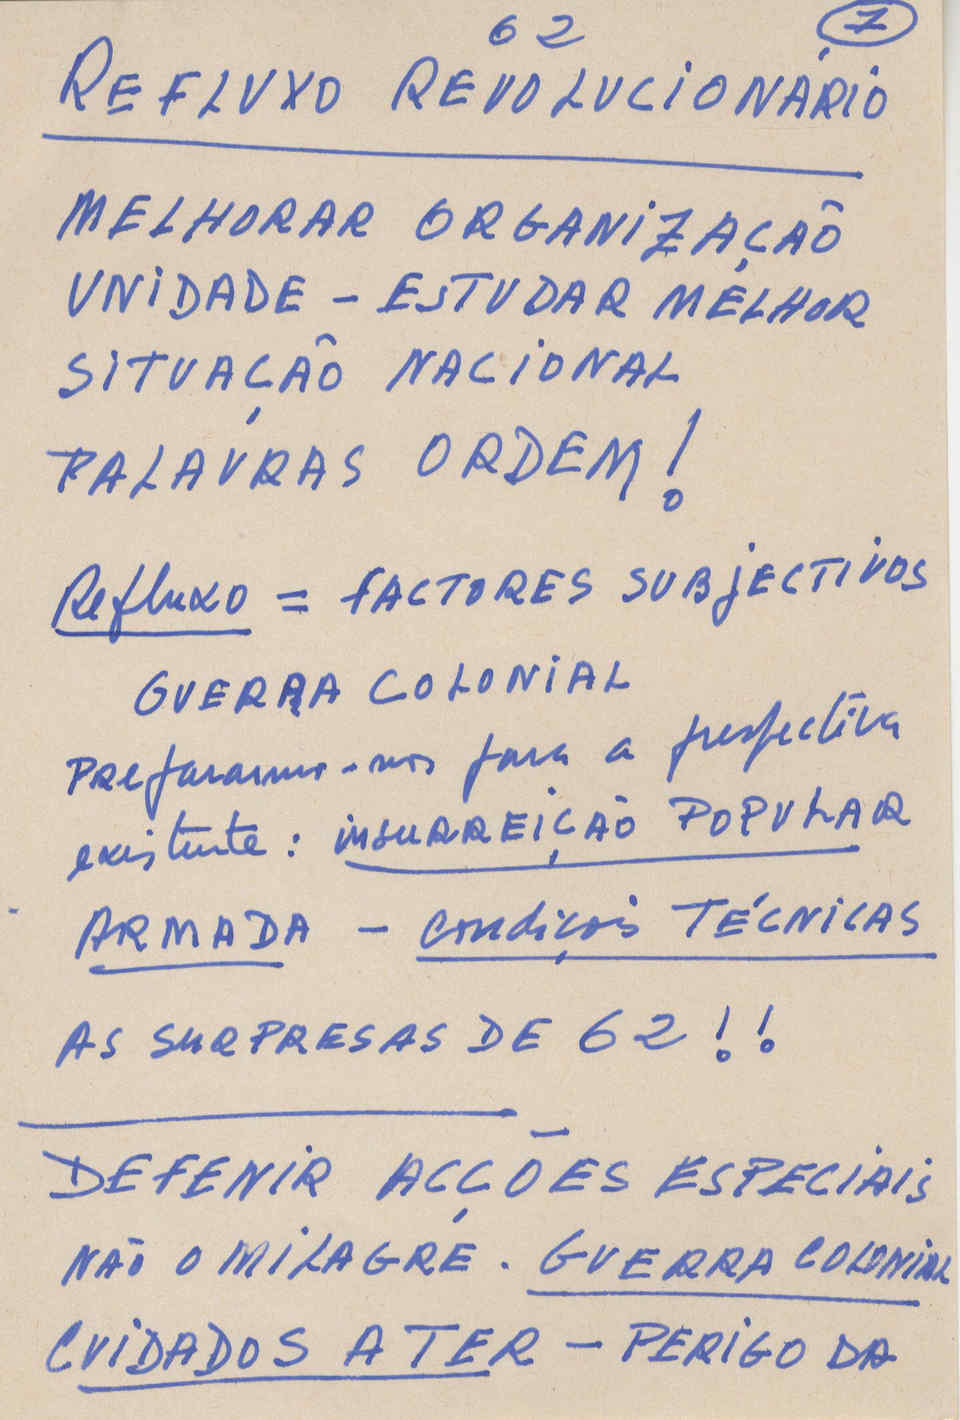 62 7
REFLUXO REVOLUCIONÁRIO
MELHORAR ORGANIZAÇÃO
UNIDADE - ESTUDAR MELHOR
SITUAÇÃO NACIONAL
PALAVRAS ORDEM!
Refluxo = FACTORES SUBJECTIVOS
GUERRA COLONIAL
Preparamo-nos para a perspectiva
existente: INSURREIÇÃO POPULAR
ARMADA - condições TÉCNICAS
AS SURPRESAS DE 62!!
DEFENIR ACÇÕES ESPECIAIS
NÃO O MILAGRE. GUERRA COLONIAL
CUIDADOS A TER - PERIGO DA